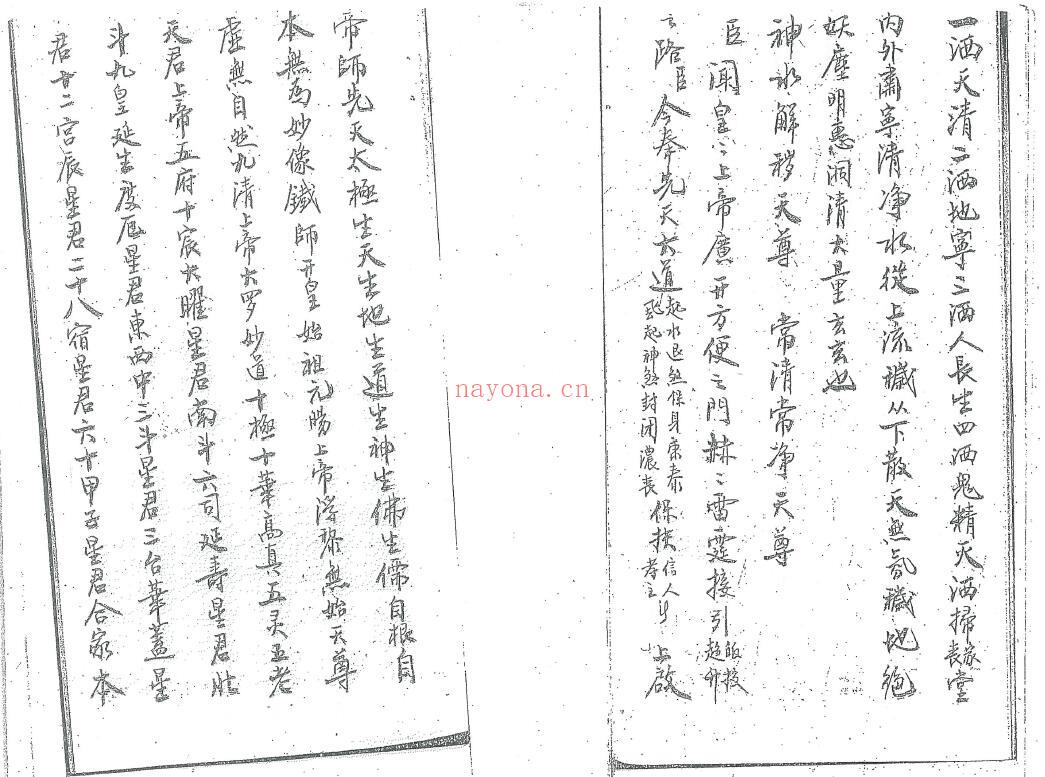 一洒天清二洒地寧三洒人長生四洒鬼精灭洒掃家喪堂
内外肅寧清净水從上流穢从下散天無氛穢地絶
妖塵明惠洞清大量玄玄也
神水解穢天尊 常清常净天尊
臣聞皇〻上帝廣開方便之門赫〻雷霆接引皈投超升
之路臣今奉先天大道起水退煞保身康泰起神煞封闭濃喪保扶信人孝主 上啟
帝師先天太極生天生地生道生神生佛生儒自根自
本無為妙像鐵師開皇始祖元陽上帝浮黎無始天尊
虚無自然九清上帝大罗妙道十極十華高真五灵五老
天君上帝五府十宸大曜星君南斗六司延壽星君
斗九皇延生度厄星君東西中三斗星君三台華蓋星
君十二宫辰星君二十八宿星君六十甲子星君合家本
nayona.cn